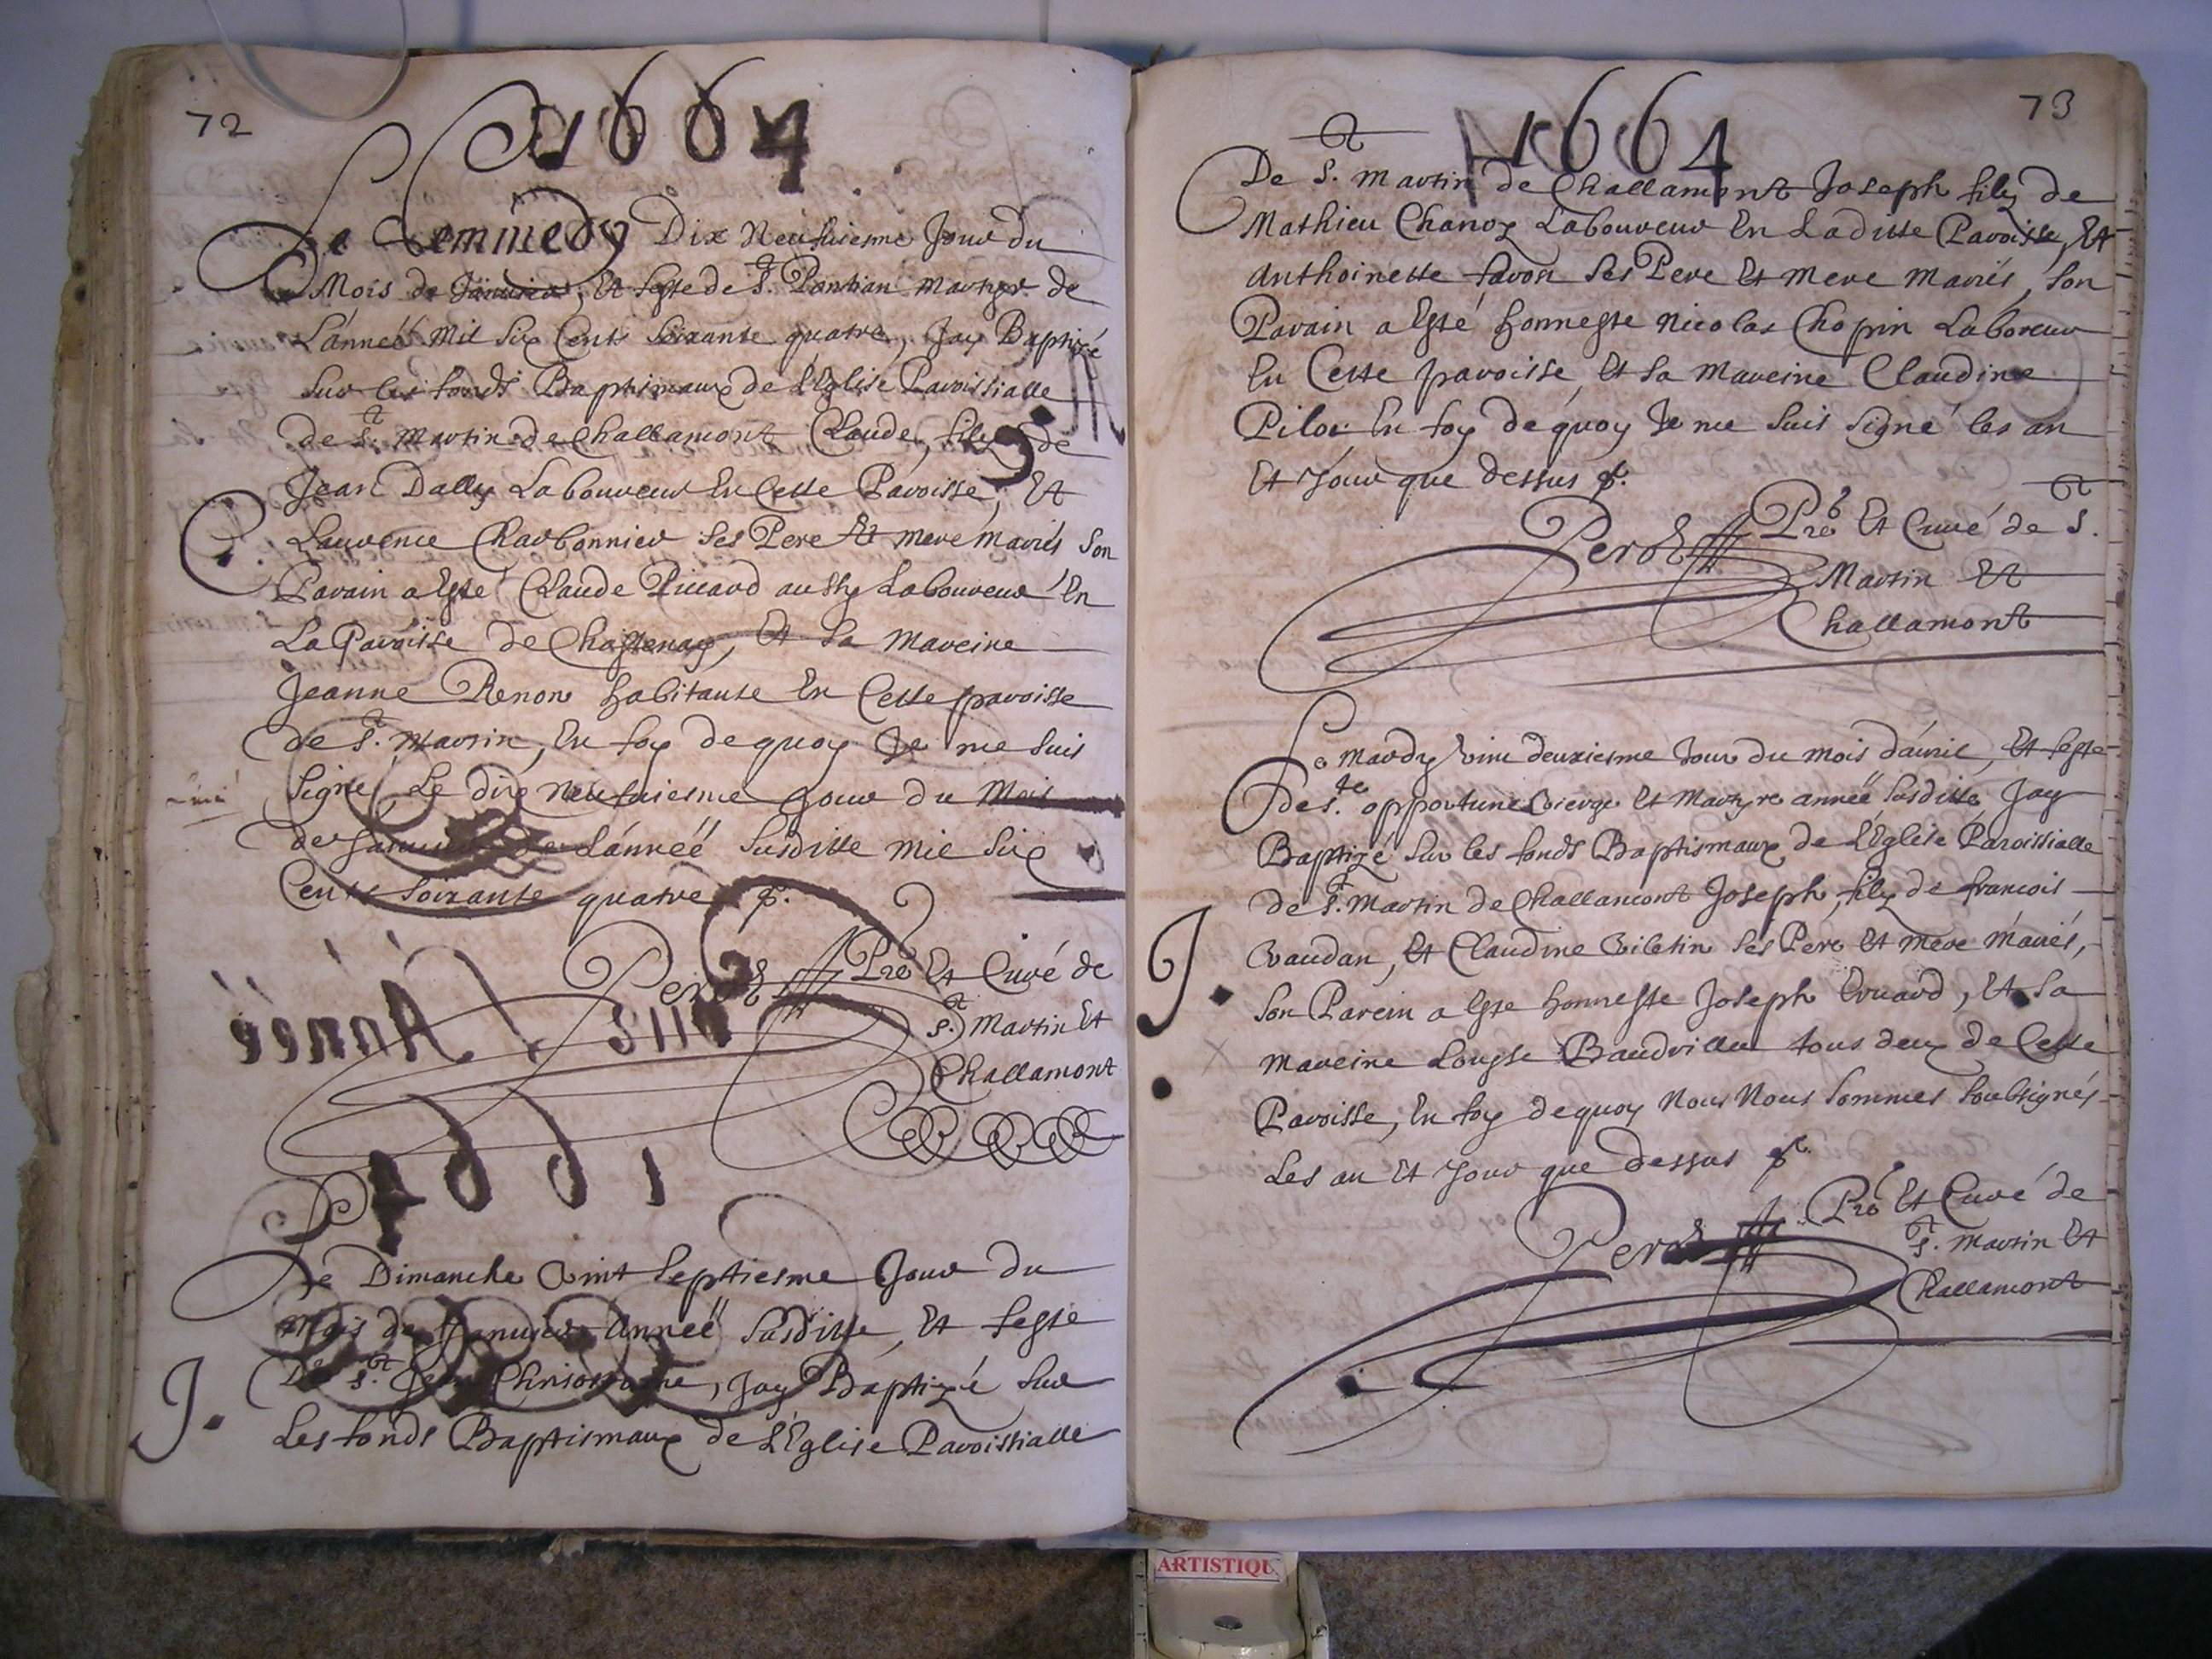 72
1664
Le Semmedy Dix Neufuiesme Jour du
Mois de Januier, Et feste de S.t Pontian Martyr de
L'annéé Mil Six Cents Soixante quatre, Jay Baptizé
Sur les fonds Baptismaux de L'Eglise Paroissialle
de S.t Martin de Challamont Claude, filz de
Jean Dally Laboureur En Cette Paroisse, Et
Laurence Charbonnier Ses Pere Et mere mariés Son
Parain a Esté Claude Picard aussy Laboureur En
La Paroisse de Chastenay, Et Sa Mareine
Jeanne Renon habitante En Cette paroisse
de S.t Martin, En foy de quoy Je me Suis
Signé, Le dix neufuiesme Jour du Mois
de Januier de L'annéé Susditte Mil Six
Cents Soixante quatre
Pbre Et Curé de
S.t Martin Et
Challamont
Le Dimanche Vint Septiesme Jour du
Mois de Januier Annéé Susditte, Et feste
De S.t Jean Chrisostome, Jay Baptizé Sur
Les fonds Baptismaux de L'Eglise Paroissialle
J.
73
1664
De S.t Martin de Challamont Joseph filz de
Mathieu Chanoz Laboureur En Laditte Paroisse, Et
Anthoinette favon Ses Pere Et Mere Mariés, Son
Parain a Esté honneste Nicolas Chopin Laboreur
En Cette paroisse, Et Sa Mareine Claudine
En foy de quoy Je me Suis Signé les an
Et Jour que dessus
Pbre Et Curé de S.t
Martin Et
Challamont
Le Mardy Vint deuxiesme Jour du Mois d'auril, Et feste
De S.te Opportune Vierge Et Martyre année Susditte, Jay
Baptizé Sur les fonds Baptismaux de L'Eglise Paroissialle
de S.t Martin de Challamont Joseph, filz de francois
Vaudan, Et Claudine Viletin Ses Pere Et Mere Mariés,
Son Parein a Este honneste Joseph Evrard, Et Sa
Mareine tous deux de Cette
Paroisse, En foy de quoy Nous Nous Sommes Soubsignés
Les an Et Jour que dessus
Pbre Et Curé de
S.t Martin Et
Challamont
J.
ARTISTIQU